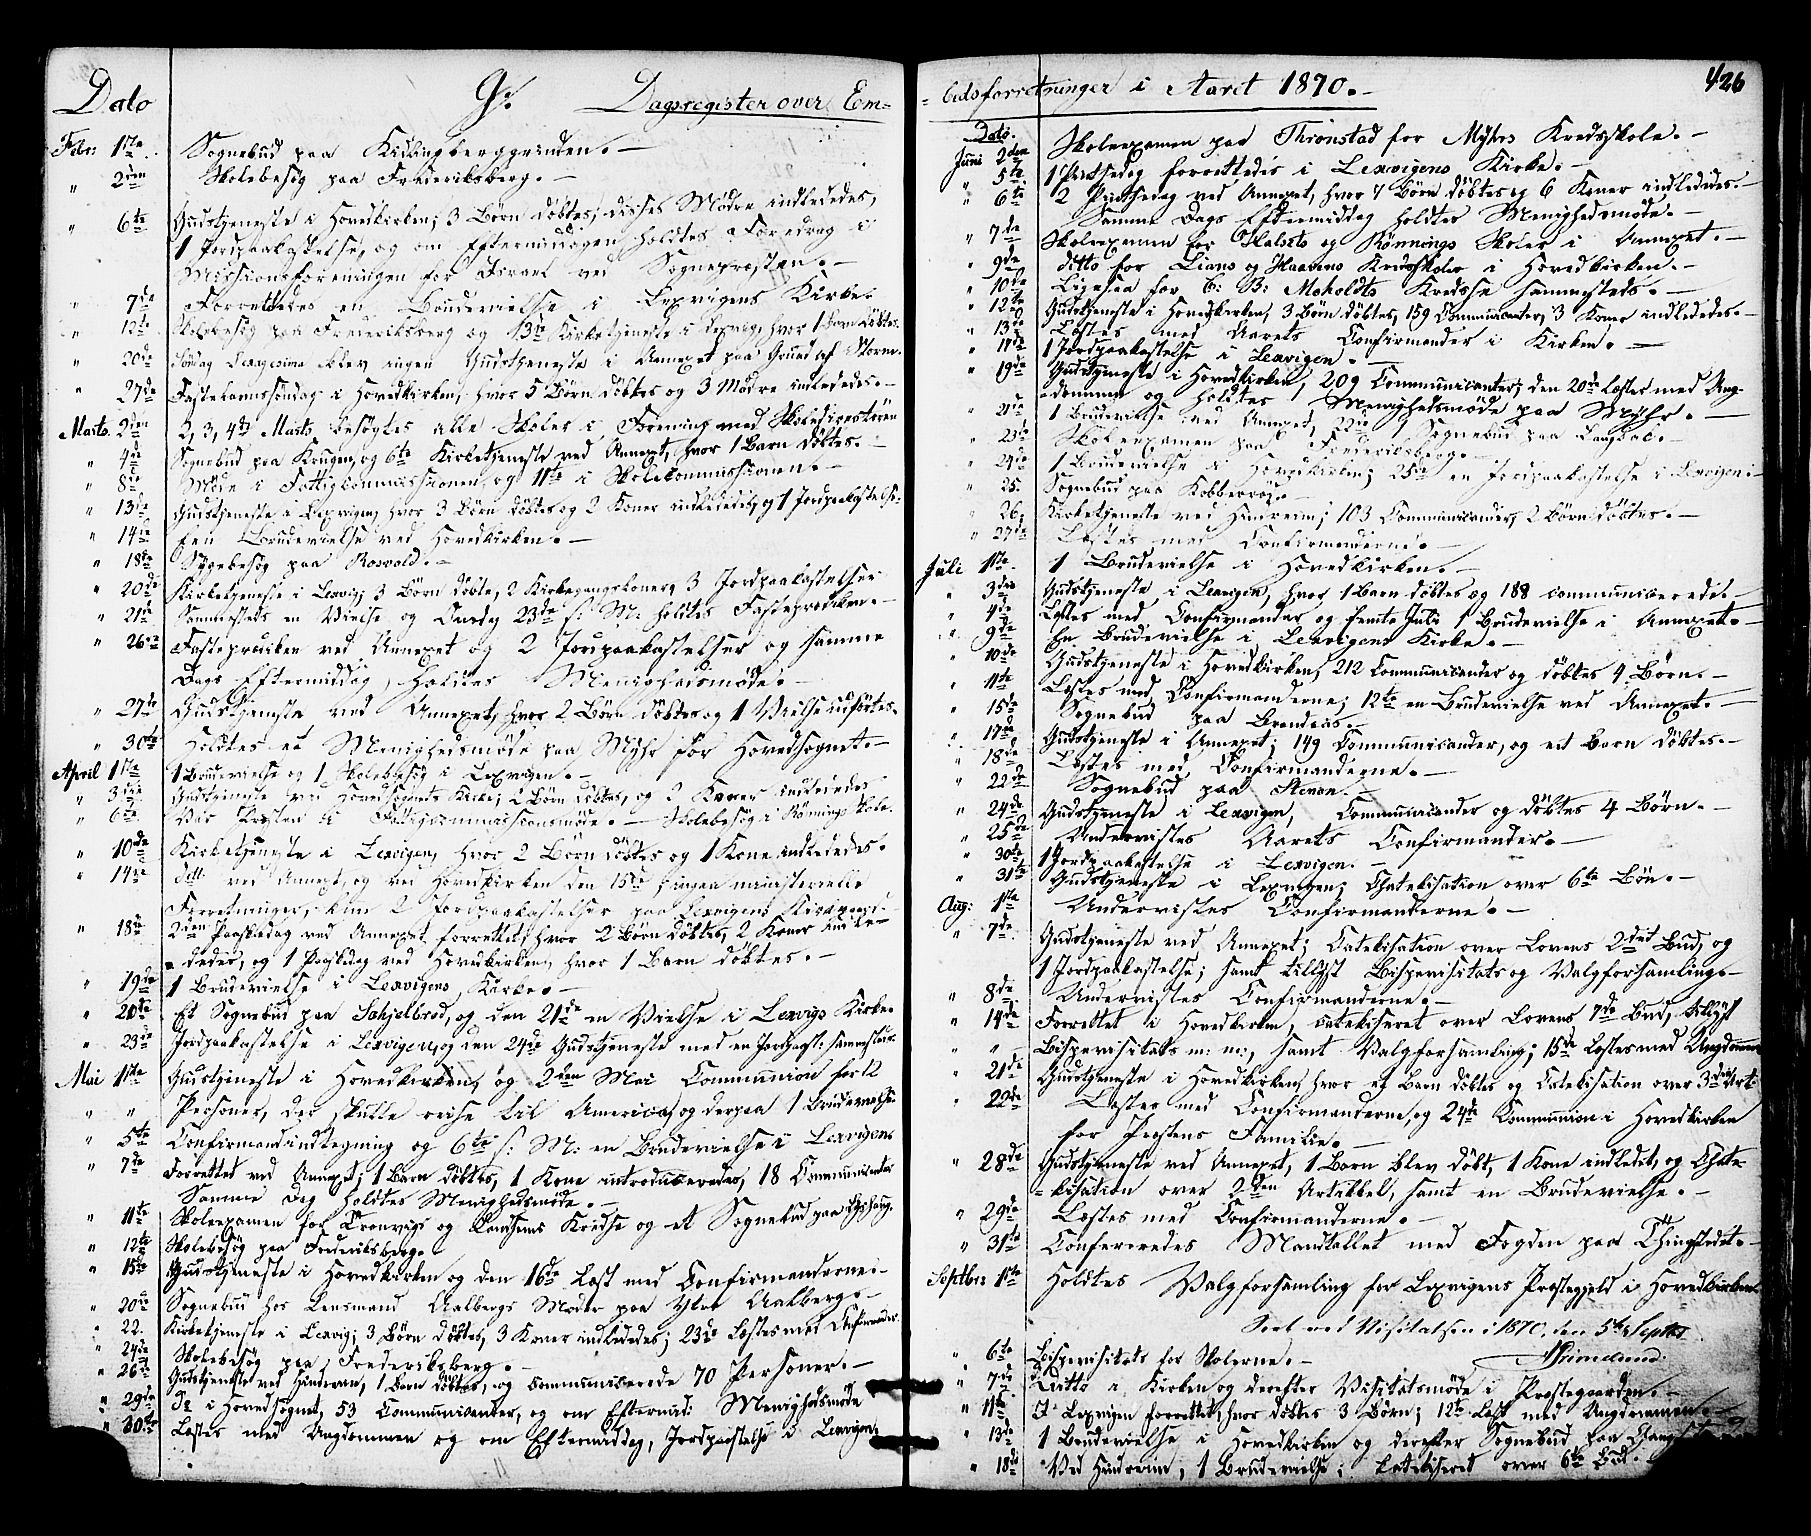 Dato G. Dagsregister over Em-
Febr: 1ste Sognebud paa Kidlingberggrinden.
" 2den Skolebesøg paa Frederiksberg.
" 6te Gudstjeneste i Hovedkirken; 3 Børn døbtes, disses Mødre indlededes,
1 Jordpaakastelse, og om Eftermiddagen holdtes Foredrag i
Missionsforeningen for Israel ved Sognepræsten.
" 7de Forrettedes en Brudevielse i Lexvigens Kirke.
" 12te Skolebesøg paa Frederiksberg og 13de Kirketjeneste i Lexvig, hvor 1 Barn døbtes.
" 20de Søndag Sexagesima blev ingen Gudstjeneste i Annexet paa Grund af Storm.
" 27de Fastelavnssöndag i Hovedkirken, hvor 5 Børn døbtes og 3 Mødre indlededes.
Marts. 2den 2, 3, 4de Marts besøgtes alle Skoler i Forening med Skoledirecteuren
" 4de Sognebud paa Krugen, og 6te Kirketjeneste ved Annexet, hvor 1 Barn døbtes.
" 8de Møde i Fattigkommissionen, og 11te i Skolekommissionen.
" 13de Gudstjeneste i Lexvigen, hvor 3 Børn døbtes og 2 Koner indlededes, og 1 Jordpaakastelse.
" 14de Een Brudevielse ved Hovedkirken.
" 18de Sygebesøg paa Rosvold.
" 20de Kirketjeneste i Lexvig; 3 Børn døbte, 2 Kirkegangskoner, 3 Jordpaakastelser
" 21de Sammesteds en Vielse og Onsdag 23de s: M: holdtes Fasteprædiken.
" 26de Fasteprædiken ved Annexet og 2 Jordpaakastelser og samme
Dags Eftermiddag, holdtes Menighedsmøde.
" 27de Gudstjeneste ved Annexet, hvor 2 Børn døbtes og 1 Vielse udførtes.
" 30te Holdtes et Menighedsmøde paa Myhr for Hovedsognet.
April 1ste 1 Brudevielse og 1 Skolebesøg i Lexvigen.
" 3die Gudstjeneste ved Hovedsognets Kirke; 2 Børn døbtes, og 2 Koner indlededes
" 6te Var Præsten i Fattigcommissionsmøde. Skolebesøg i Rönnings Skole.
" 10de Kirketjeneste i Lexvigen, hvor 2 Børn døbtes og 1 Kone indlededes.
" 14de ditto ved Annexet, og ved Hovedkirken den 15de; ingen ministerielle
Forretninger, kun 2 Jordpaakastelser paa Lexvigens Kirkegaard.
" 18de 2den Paaskedag ved Annexet forrettet, hvor 2 Børn døbtes, 2 Koner indle-
deder, og 1 Paaskedag ved Hovedkirken, hvor 1 Barn døbtes.
" 19de 1 Brudevielse i Lexvigens Kirke.
" 20de Et Sognebud paa Schjelbred, og den 21de en Vielse i Lexvigs Kirke
" 23de Jordpaakastelse i Lexvigen, og den 24de Gudstjeneste med en Jordpaast: sammesteds.
Mai 1ste Gudstjeneste i Hovedkirken, og 2den Mai Communion for 12
" " Personer, der skulle reise til America, og derpaa 1 Brudevielse.
" 5te Confirmandindtegning og 6te s: M: en Brudevielse i Lexvigens
" 7de Forrettet ved Annexet; 1 Barn døbtes, 1 Kone introduceredes, 18 Communicanter
Samme Dag holdtes Menighedsmøde.
" 11te Skoleexamen for Cronvigs og Kredse og et Sognebud paa
" 12te Skolebesøg paa Frederiksberg.
" 15de Gudstjeneste i Hovedkirken og den 16de Læst med Confirmanderne.
" 20de Sognebud hos Lensmand Aalbergs Moder paa Ytre Aalberg.
" 22. Kirketjeneste i Lexvig; 3 Børn døbtes, 3 Koner indlededes; 23de Læstes med Confirmander.
" 24de Skolebesøg paa Frederiksberg.
" 26de Gudstjeneste ved Hindrem, 1 Barn døbtes, og communicerede 70 Personer.
" 29de I Hovedsognet, 53 Communicanter, og om Eftermid: Menighedsmøde
" 30te Læstes med Ungdommen og om Eftermiddag, Jordpaastelse i Lexvigen.
-bedsforretninger i Aaret 1870. 426
Dato.
Juni 2den Skoleexamen paa Thronstad for Myhrs Kredsskole.
" 5te 1 Pintsedag forrettedes i Lexvigens Kirke.
" 6te 2 Pintsedag ved Annexet, hvor 7 Børn døbtes og 6 Koner indlededes.
Samme Dags Eftermiddag holdtes Menighedsmøde.
" 7de Skoleexamen for og Rönnings Skoler i Annexet.
" 9de ditto for Lians og Haavens Kredsskoler i Hovedkirken.
" 10de Ligesaa for Moholdts Kredse sammesteds.
" 12te Gudstjeneste i Hovedkirken, 3 Børn døbtes, 159 Communicanter, 3 Koner indlededes.
" 13de Læstes med Aarets Confirmander i Kirken.
" 17de 1 Jordpaakastelse i Lexvigen.
" 19de Gudstjeneste i Hovedkirken, 209 Communicanter; den 20de læstes med Ung-
dommen og holdtes Menighedsmøde paa Myhr.
" 21de 1 Brudevielse ved Annexet, 22de Sognebud paa
" 23de Skoleexamen paa Frederiksberg.
" 24de 1 Brudevielse i Hovedkirken; 25de en Jordpaakastelse i Lexvigen.
" 25. Sognebud paa Kobberrøi.
" 26. Kirketjeneste ved Hindreim; 103 Communicander, 2 Børn døbtes.
" 27de Læstes med Confirmanderne.
Juli 1ste 1 Brudevielse i Hovedkirken.
" 3die Gudstjeneste i Lexvigen, hvor 1 Barn døbtes og 188 communicerede.
" 4de Læstes med Confirmander og femte Juli 1 Brudevielse i Annexet.
" 9de En Brudevielse i Lexvigens Kirke.
" 10de Gudstjeneste i Hovedkirken, 212 Communicander og døbtes 4 Børn.
" 11te Læstes med Confirmanderne; 12te en Brudevielse ved Annexet.
" 15de Sognebud paa Brandaas.
" 17de Gudstjeneste i Annexet; 149 Communicander, og eet Barn døbtes.
" 18de Læstes med Confirmanderne.
" 22de Sognebud paa
" 24de Gudstjeneste i Lexvigen, Communicander og døbtes 4 Børn.
" 25de Undervistes Aarets Confirmander.
" 30te 1 Jordpaakastelse i Lexvigen.
" 31te Gudstjeneste i Lexvigen; Chatekisation over 6te Bøn.
Aug: 1ste Undervistes Confirmanderne.
" 7de Gudstjeneste ved Annexet; Catekisation over Lovens 2det Bud, og
1 Jordpaakastelse; samt tillyst Bispevisitats og Valgforsamling.
" 8de Undervistes Confirmanderne.
" 14de Forrettet i Hovedkirken, catekiseret over Lovens 7de Bud, tillyst
" " Bispevisitats m: m:, samt Valgforsamling; 15de Læstes med Ungdommen
" 21de Gudstjeneste i Hovedkirken, hvor et Barn døbtes og Catekisation over 3die Art:
" 22de Læstes med Confirmanderne, og 24de Kommunion i Hovedkirken
for Præstens Familie.
" 28de Gudstjeneste ved Annexet, 1 Barn blev døbt, 1 Kone indledet, og Chate-
kisation over 2den Artikkel, samt en Brudevielse.
" 29de Læstes med Confirmanderne.
" 31te Confereredes Mandtallet med Fogden paa Thingstedet.
Septbr: 1ste Holdtes Valgforsamling for Lexvigens Præstegjeld i Hovedkirken.
Seet ved Visitatsen i 1870, den 5te Septbr
Grimelund.
" 6te Bispevisitats for Skolerne.
" 7de Ditto i Kirken og derefter Visitatsmøde i Præstegaarden.
" 11te I Lexvigen forrettet, hvor døbtes 3 Børn; 12te Læst med Ungdommen.
" 13de 1 Brudevielse i Hovedkirken og derefter Sognebud paa
" 18de Ved Hindreim, 1 Brudevielse; Catekiseret over 6te Bud.